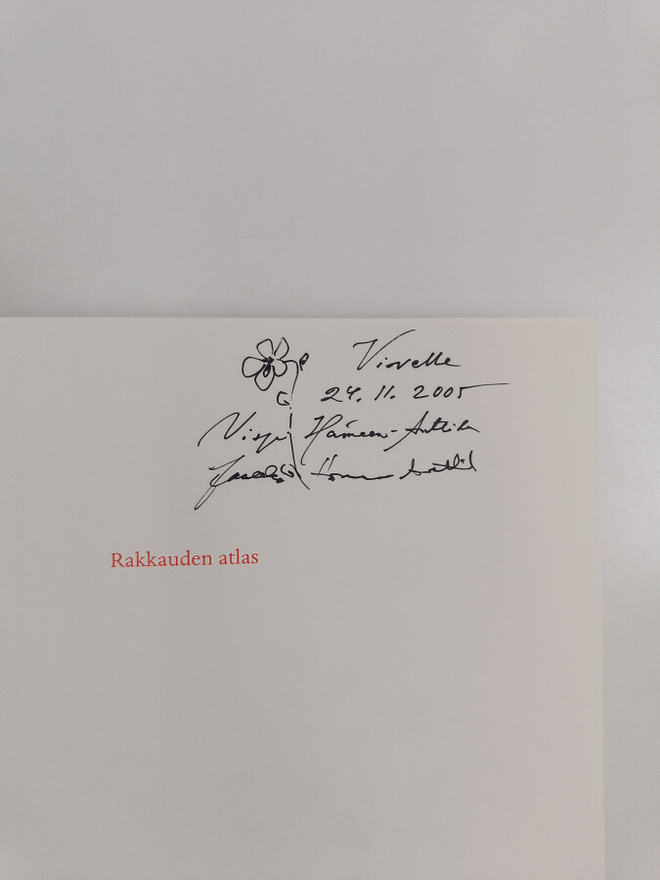 Virvelle
24. 11. 2005
Virpi Hämeen-Anttila
Jaakko Hämeen-Anttila
Rakkauden atlas